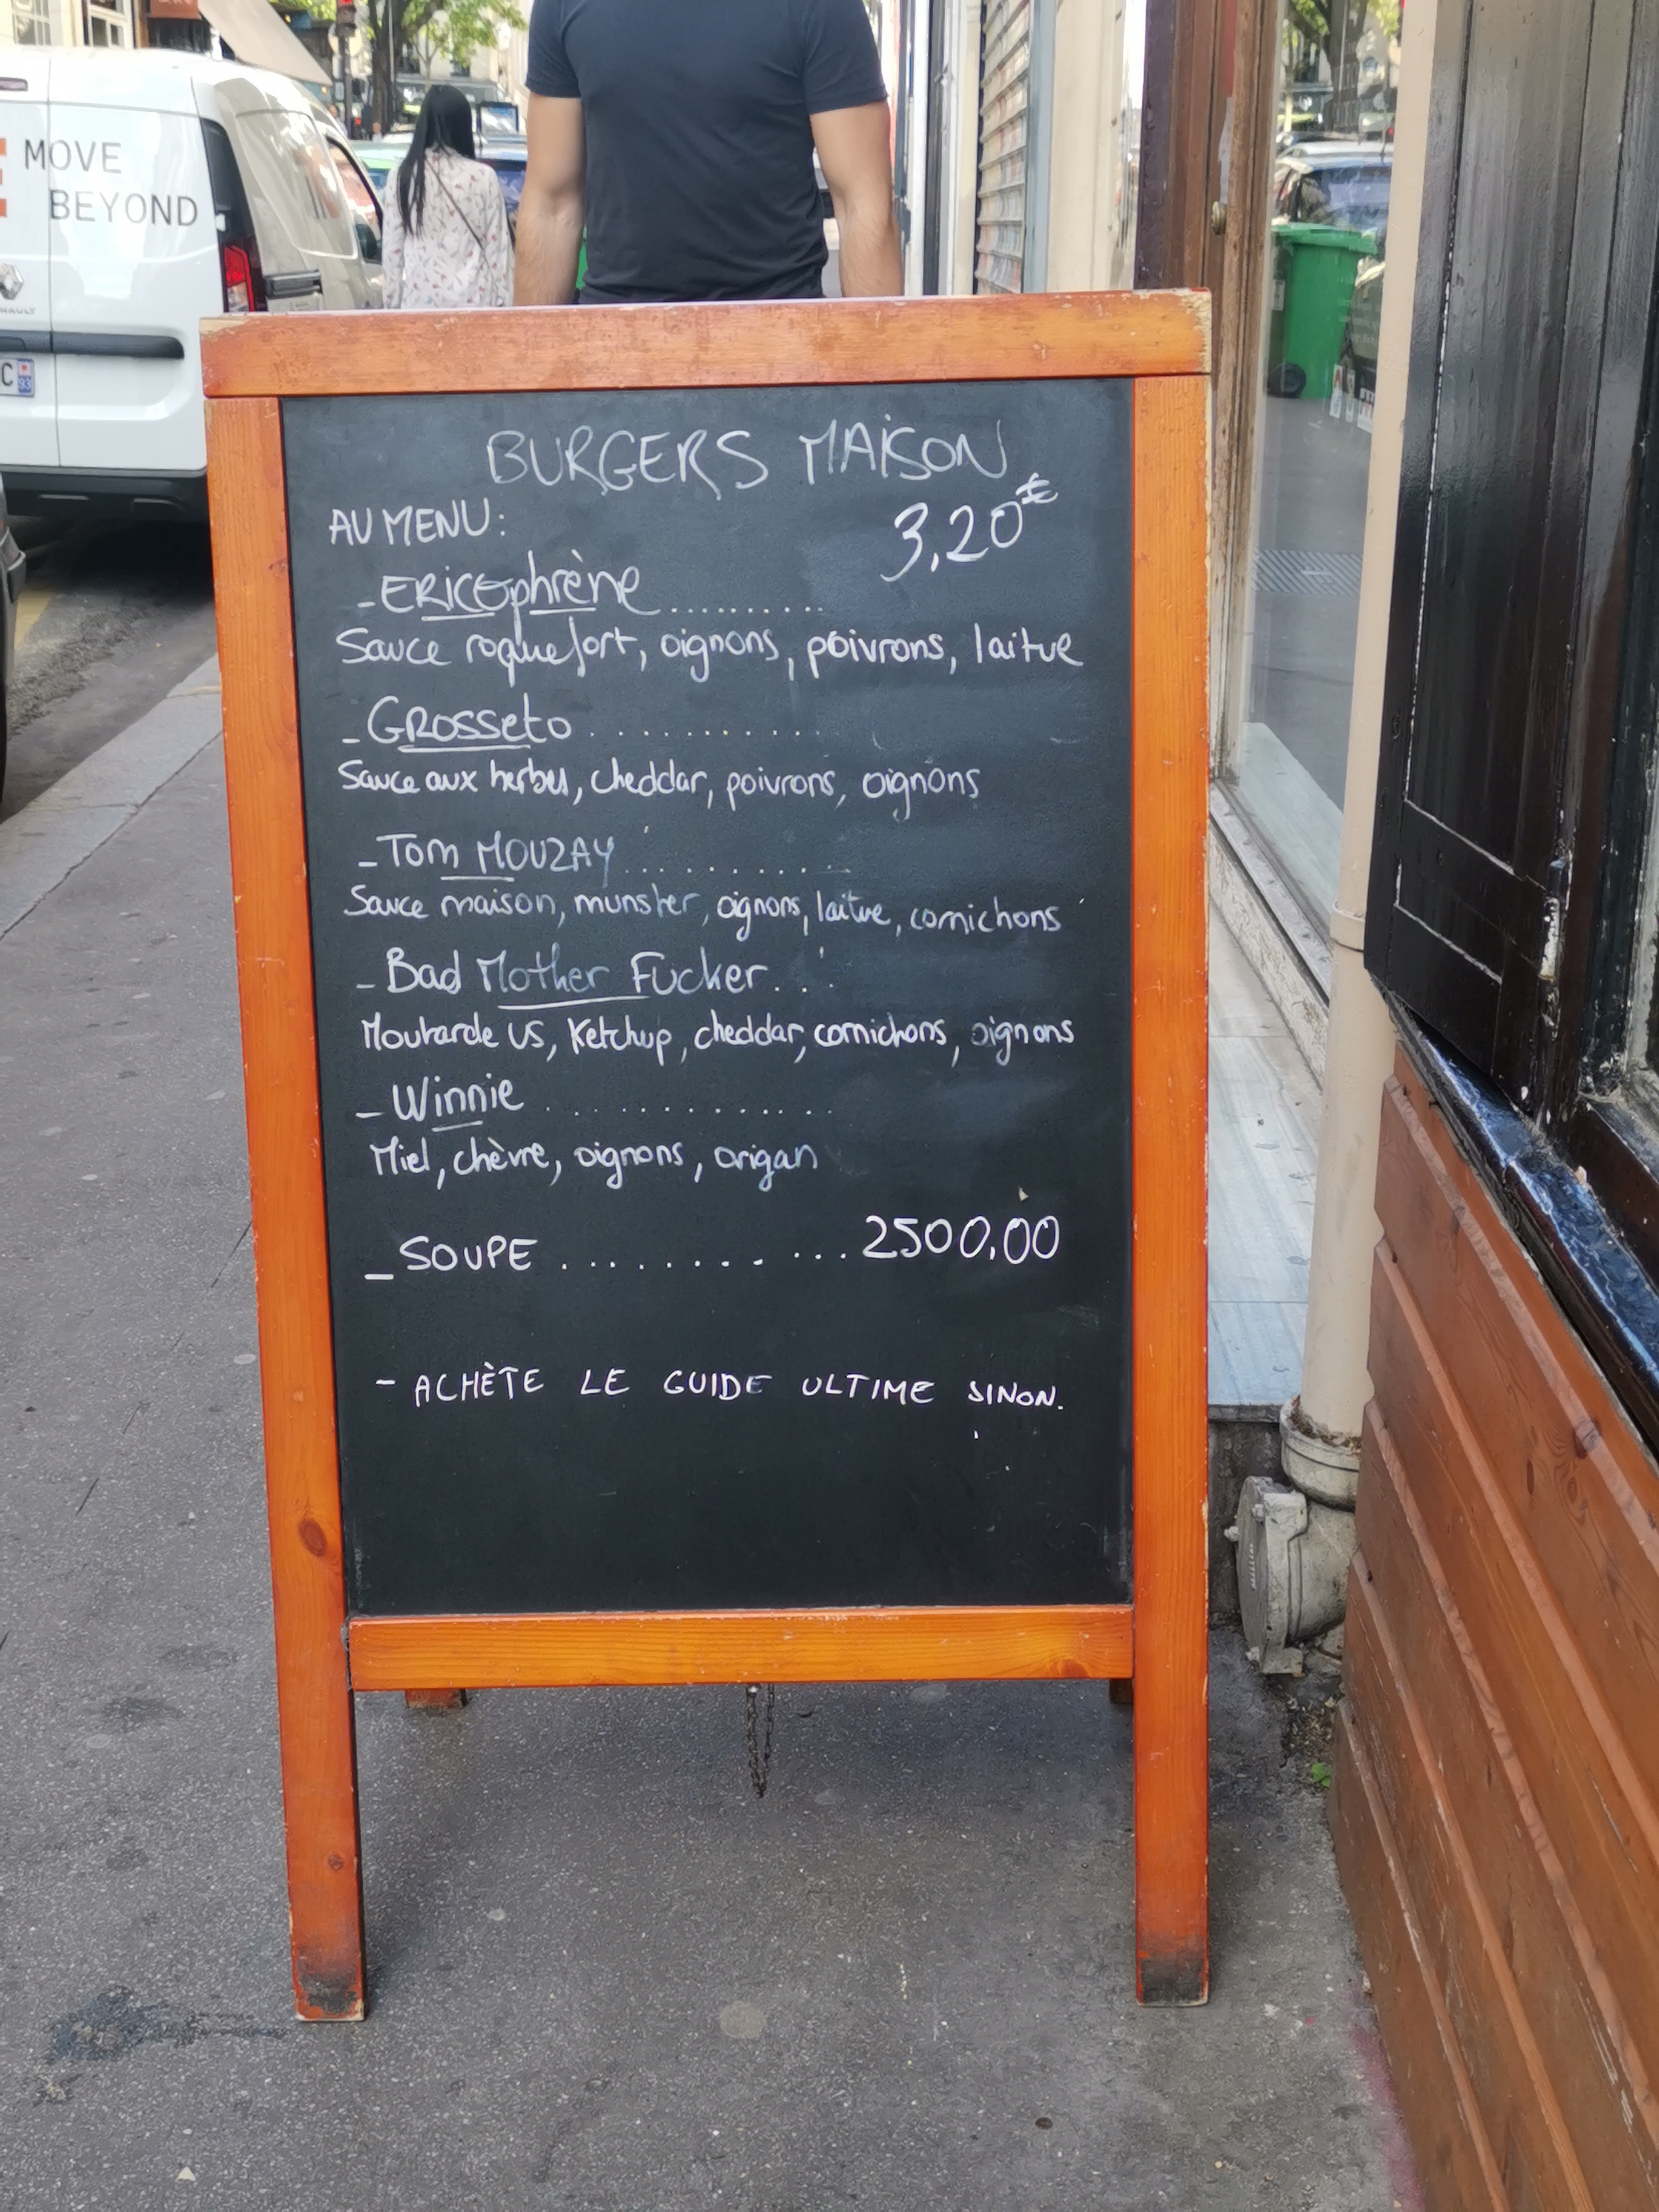 MOVE
BEYOND
RENAULT
C
93
BURGERS MAISON
AU MENU:
3,20€
- ERICOphrène ..........
Sauce roquefort, oignons, poivrons, laitue
- GROSSETO ...........
Sauce aux herbes, cheddar, poivrons, oignons
- Tom MOUZAY ..........
Sauce maison, munster, oignons, laitue, cornichons
- Bad Mother Fucker ...
Moutarde US, Ketchup, cheddar, cornichons, oignons
- Winnie .............
Miel, chèvre, oignons, origan
- SOUPE ........... 2500,00
- ACHÈTE LE GUIDE ULTIME SINON.